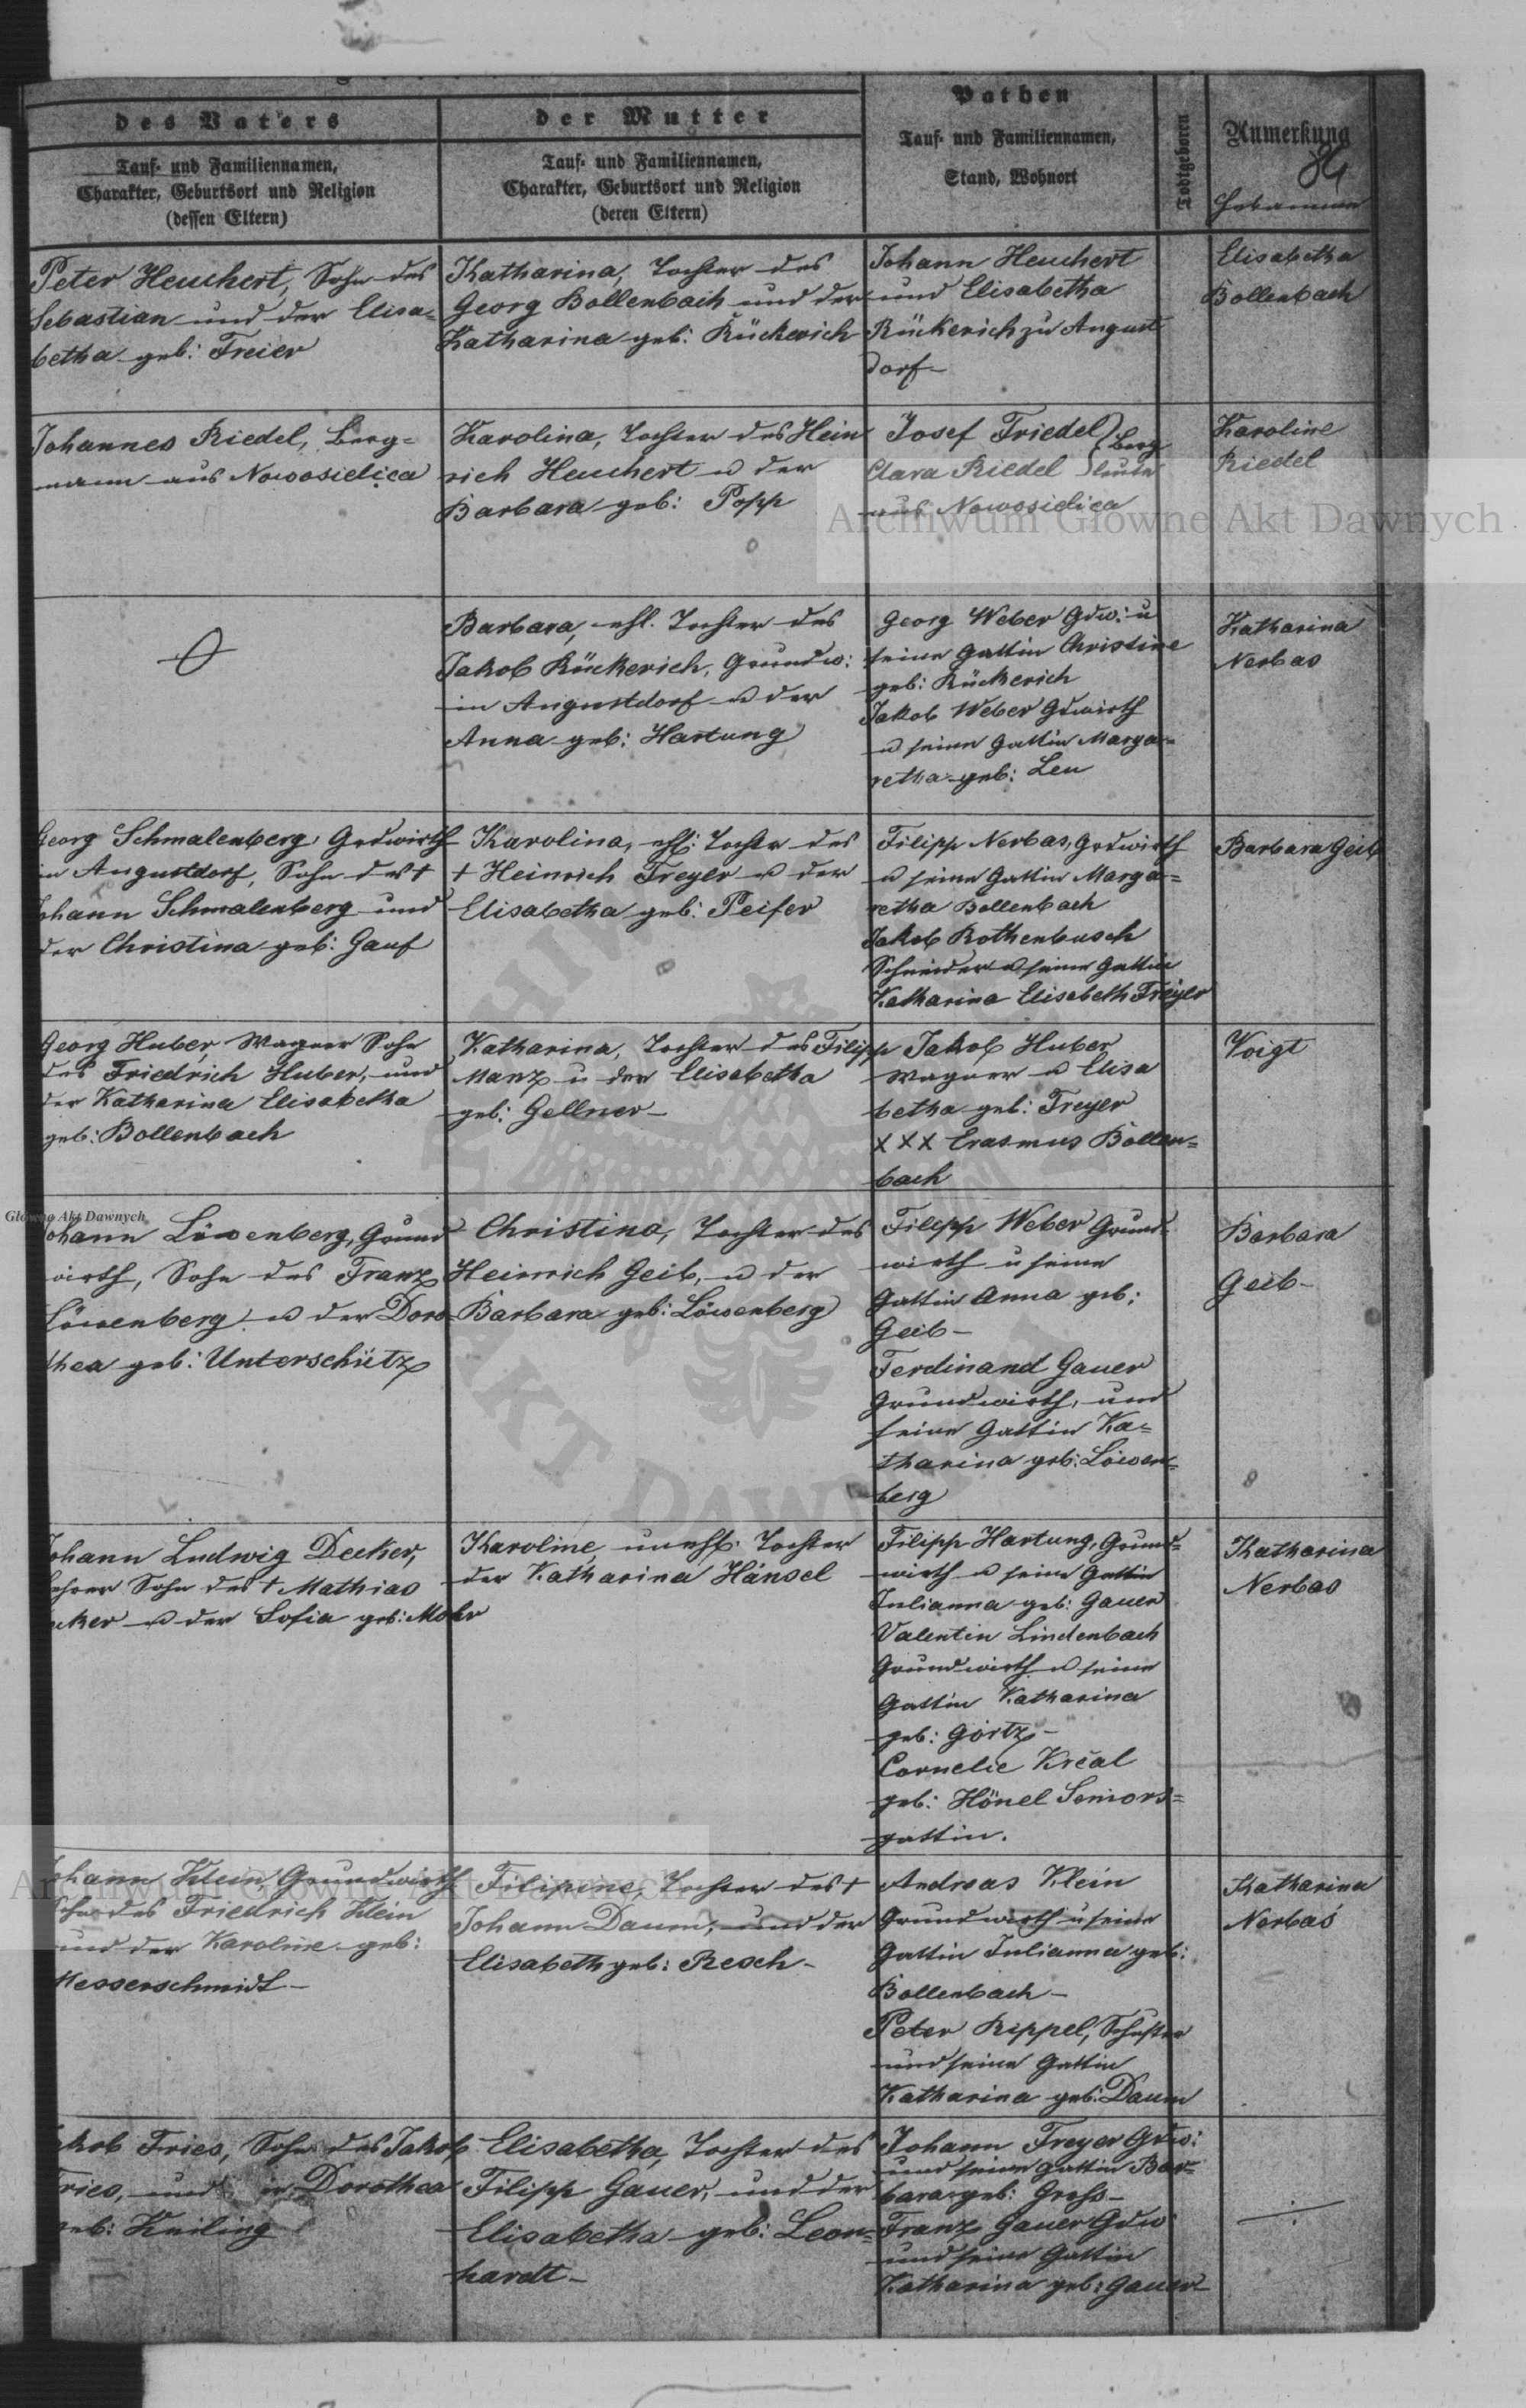 des Vaters
Tauf- und Familiennamen,
Charakter, Geburtsort und Religion
(dessen Eltern)
der Mutter
Tauf- und Familiennamen,
Charakter, Geburtsort und Religion
(deren Eltern)
Pathen
Tauf- und Familiennamen,
Stand, Wohnort
Todtgeboren
Anmerkung
84
Hebamme
Peter Heuchert, Sohn des
Sebastian und der Elisa-
betha geb: Freier
Katharina, Tochter des
Georg Bollenbach und der
Katharina geb: Rückerich
Johann Heuchert
und Elisabetha
Rückerich zu August
dorf-
Elisabetha
Bollenbach
Johannes Riedel, Berg=
mann aus Nowosielica
Karolina, Tochter des Hein
rich Heuchert u der
Barbara geb: Popp
Josef Friedel
Clara Riedel
Berg
leute
aus Nowosielica
Karoline
Riedel
Barbara, ehl. Tochter des
Jakob Rückerich, Grundw:
in Augustdorf u der
Anna geb: Hartung
Georg Weber Gdw: u
seine Gattin Christine
geb: Rückerich
Jakob Weber Gdwirth
u seine Gattin Marga=
retha geb: Leu
Katharina
Nerbas
Georg Schmalenberg, Grdwirth
in Augustdorf, Sohn des †
Johann Schmalenberg und
der Christina geb: Gauf
Karolina, ehl: Tochter des
† Heinrich Freyer u der
Elisabetha geb: Peifer
Filipp Nerbas, Grdwirth
u seine Gattin Marga=
retha Bollenbach
Jakob Rothenbusch
Schneider u seine Gattin
Katharina Elisabeth Freyer
Barbara Geib
Georg Huber, Wagner Sohn
des Friedrich Huber, und
der Katharina Elisabetha
geb: Bollenbach
Katharina, Tochter des Filipp
Manz u der Elisabetha
geb: Gellner-
Jakob Huber
Wagner u Elisa
betha geb: Freyer
XXX Erasmus Bollen=
bach
Voigt
Johann Löwenberg, Grund
wirth, Sohn des Franz
Löwenberg u der Doro
thea geb: Unterschütz
Christina, Tochter des
Heinrich Geib, u der
Barbara geb: Löwenberg
Filipp Weber Grund=
wirth u seine
Gattin Anna geb:
Geib-
Ferdinand Gauer
Grundwirth, und
seine Gattin Ka=
tharina geb: Löwen=
berg
Barbara
Geib-
Johann Ludwig Decker,
Lehrer Sohn des † Mathias
cker u der Sofia geb: Mohr
Karoline, unehl: Tochter
der Katharina Hänsel
Filipp Hartung, Grund=
wirth u seine Gattin
Julianna geb: Gauer
Valentin Lindenbach
Grundwirth u seine
Gattin Katharina
geb: Görtz-
Cornelie Krčal
geb: Hönel Seniors=
gattin.
Katharina
Nerbas
Johann Klein Grundwirth
Sohn des Friedrich Klein
und der Karoline geb:
Messerschmidt-
Filipine, Tochter des †
Johann Daum, und der
Elisabeth geb: Resch-
Andreas Klein
Grundwirth u seine
Gattin Julianna geb:
Bollenbach-
Peter Rippel, Schuster
und seine Gattin
Katharina geb: Daum
Katharina
Nerbas
Jakob Fries, Sohn des Jakob
Fries, und Dorothea
geb: Keiling
Elisabetha, Tochter des
Filipp Gauer, und der
Elisabetha geb: Leon=
hardt-
Johann Freyer Gdw:
und seine Gattin Bar=
bara geb: Gross-
Franz Gauer Gdw
und seine Gattin
Katharina geb: Gauer-
Archiwum Główne Akt Dawnych
Główne Akt Dawnych
Archiwum Główne Akt Dawnych
ARCHIWUM
AKT DAWNYCH